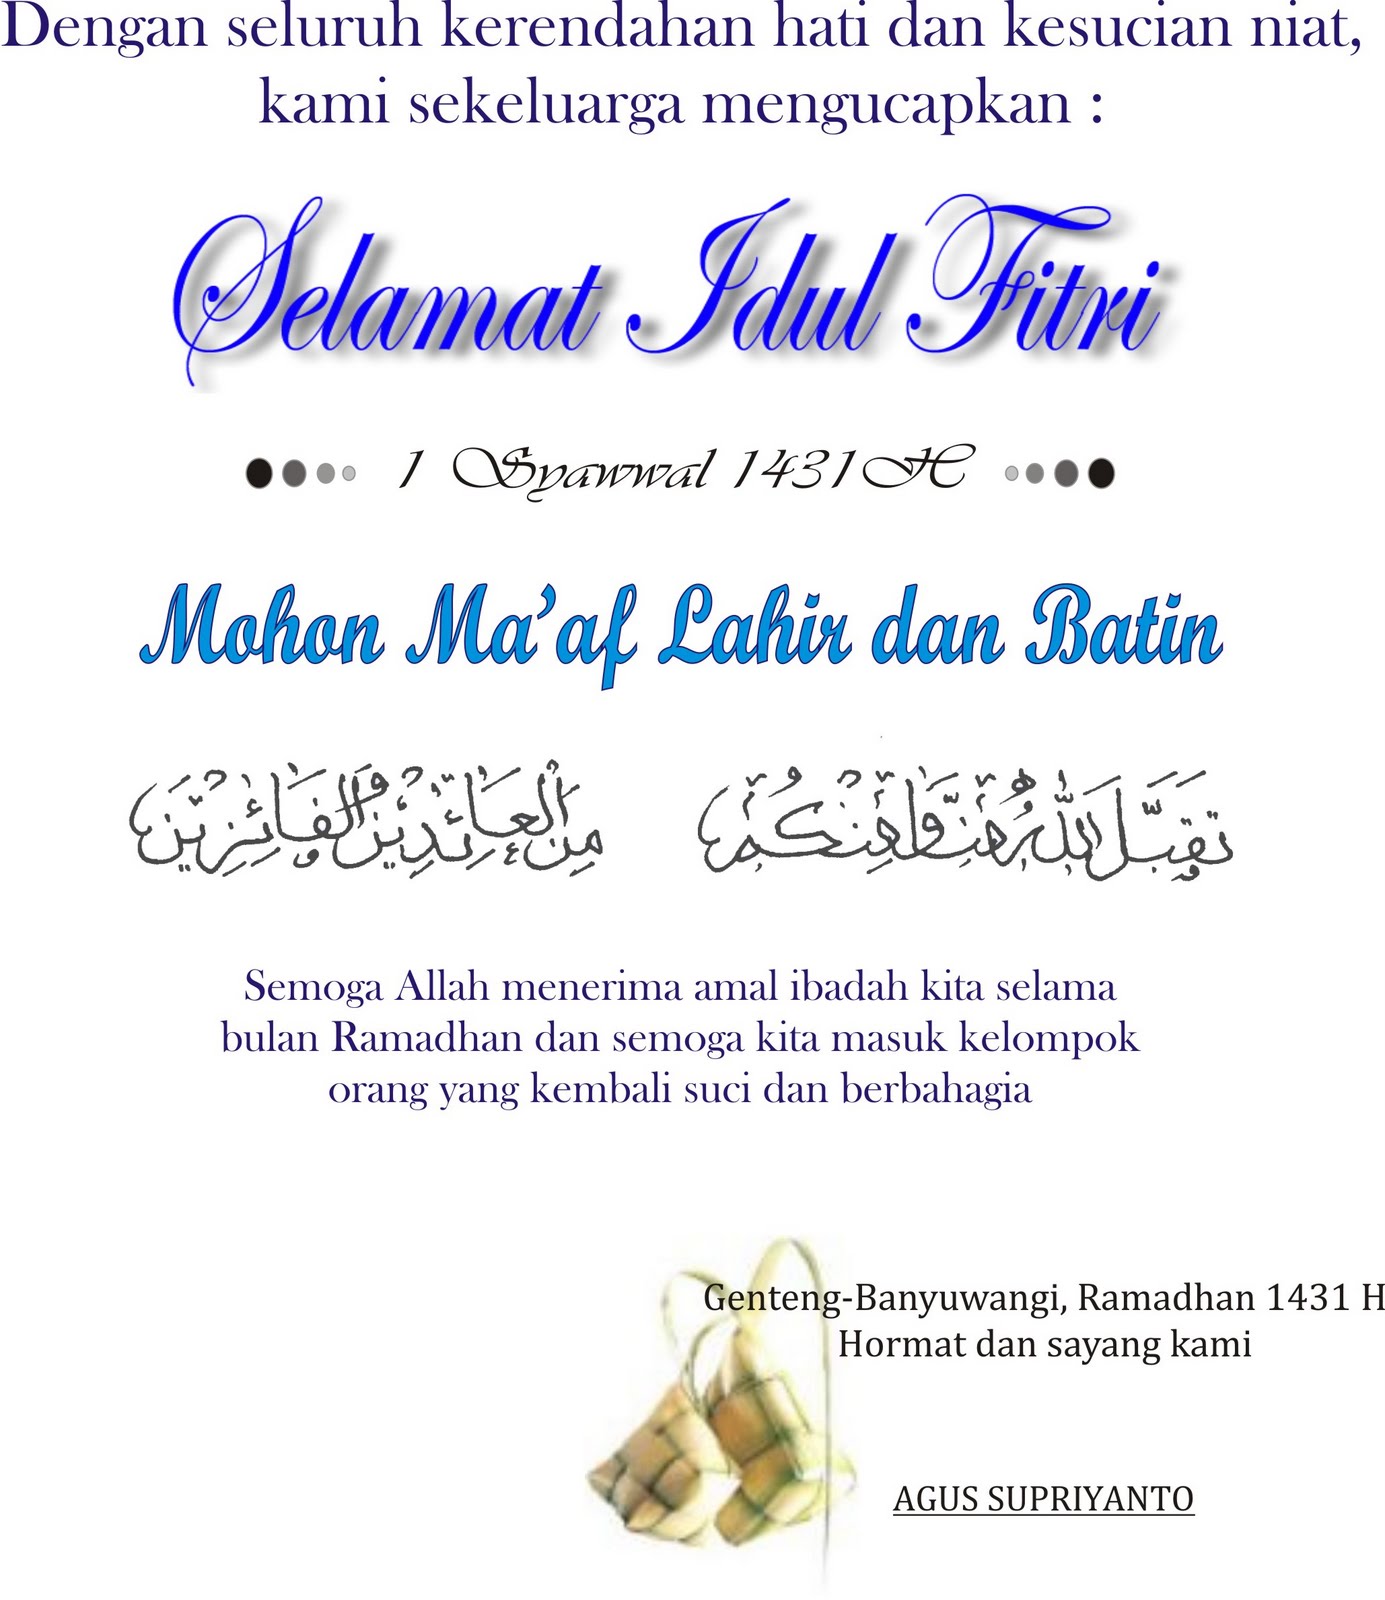 Dengan seluruh kerendahan hati dan kesucian niat,
kami sekeluarga mengucapkan :
Selamat Idul Fitri
1 Syawwal 1431 H
Mohon Ma'af Lahir dan Batin
تَقَبَّلَ اللّٰهُ مِنَّا وَمِنْكُمْ مِنَ الْعَائِدِيْنَ وَالْفَائِزِيْنَ
Semoga Allah menerima amal ibadah kita selama
bulan Ramadhan dan semoga kita masuk kelompok
orang yang kembali suci dan berbahagia
Genteng-Banyuwangi, Ramadhan 1431 H
Hormat dan sayang kami
AGUS SUPRIYANTO